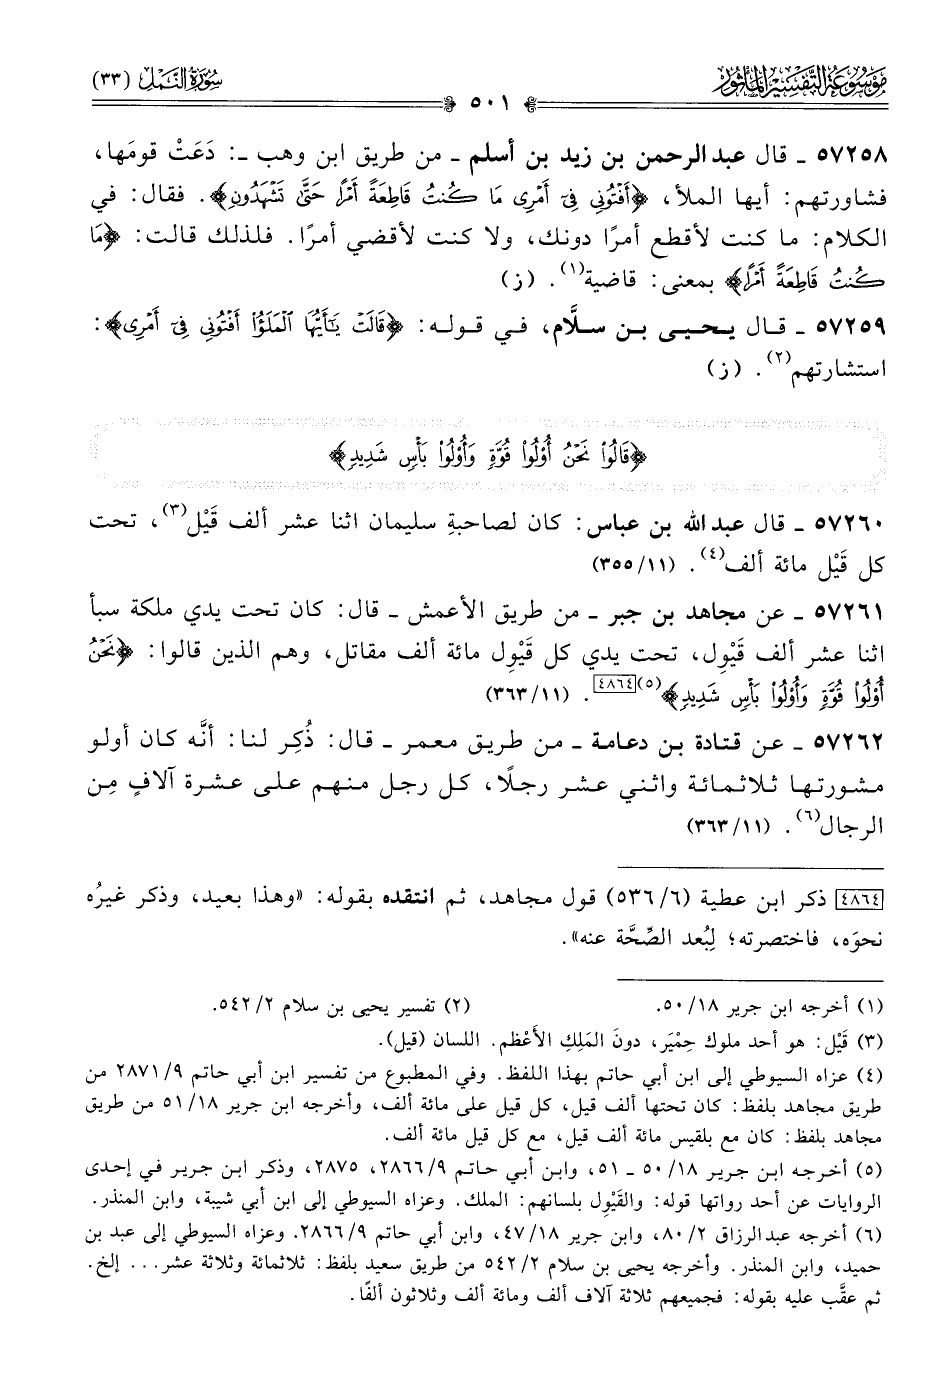 مَوْسُوعَة التَّفْسِيْرِ المَأْثُور
سُورَةُ النَّمْل (٣٣)
٥٠١
٥٧٢٥٨ ـ قال عبدالرحمن بن زيد بن أسلم ـ من طريق ابن وهب ـ: دَعَتْ قومَها،
فشاورتهم: أيها الملأ، ﴿أَفْتُونِى فِىٓ أَمْرِى مَا كُنتُ قَاطِعَةً أَمْرًا حَتَّىٰ تَشْهَدُونِ﴾. فقال: في
الكلام: ما كنت لأقطع أمرًا دونك، ولا كنت لأقضي أمرًا. فلذلك قالت: ﴿مَا
كُنتُ قَاطِعَةً أَمْرًا﴾ بمعنى: قاضية(١). (ز)
٥٧٢٥٩ ـ قال يحيى بن سلَّام، في قوله: ﴿قَالَتْ يَٰٓأَيُّهَا ٱلْمَلَؤُا۟ أَفْتُونِى فِىٓ أَمْرِى﴾:
استشارتهم(٢). (ز)
﴿قَالُوا۟ نَحْنُ أُو۟لُوا۟ قُوَّةٍ وَأُو۟لُوا۟ بَأْسٍ شَدِيدٍ﴾
٥٧٢٦٠ ـ قال عبدالله بن عباس: كان لصاحبةِ سليمان اثنا عشر ألف قَيْل(٣)، تحت
كل قَيْل مائة ألف(٤). (٣٥٥/١١)
٥٧٢٦١ ـ عن مجاهد بن جبر ـ من طريق الأعمش ـ قال: كان تحت يدي ملكة سبأ
اثنا عشر ألف قَيْول، تحت يدي كل قَيْول مائة ألف مقاتل، وهم الذين قالوا: ﴿نَحْنُ
أُو۟لُوا۟ قُوَّةٍ وَأُو۟لُوا۟ بَأْسٍ شَدِيدٍ﴾(٥)[٤٨٦٤]. (٣٦٣/١١)
٥٧٢٦٢ ـ عن قتادة بن دعامة ـ من طريق معمر ـ قال: ذُكِر لنا: أنَّه كان أولو
مشورتها ثلاثمائة واثني عشر رجلًا، كل رجل منهم على عشرة آلافٍ مِن
الرجال(٦). (٣٦٣/١١)
[٤٨٦٤] ذكر ابن عطية (٥٣٦/٦) قول مجاهد، ثم انتقده بقوله: «وهذا بعيد، وذكر غيرُه
نحوَه، فاختصرته؛ لِبُعد الصِّحَّة عنه».
(١) أخرجه ابن جرير ٥٠/١٨. (٢) تفسير يحيى بن سلام ٥٤٢/٢.
(٣) قَيْل: هو أحد ملوك حِمْيَر، دونَ المَلِكِ الأَعْظم. اللسان (قيل).
(٤) عزاه السيوطي إلى ابن أبي حاتم بهذا اللفظ. وفي المطبوع من تفسير ابن أبي حاتم ٢٨٧١/٩ من
طريق مجاهد بلفظ: كان تحتها ألف قيل، كل قيل على مائة ألف، وأخرجه ابن جرير ٥١/١٨ من طريق
مجاهد بلفظ: كان مع بلقيس مائة ألف قيل، مع كل قيل مائة ألف.
(٥) أخرجه ابن جرير ٥٠/١٨ ـ ٥١، وابن أبي حاتم ٢٨٦٦/٩، ٢٨٧٥، وذكر ابن جرير في إحدى
الروايات عن أحد رواتها قوله: والقَيْول بلسانهم: الملك. وعزاه السيوطي إلى ابن أبي شيبة، وابن المنذر.
(٦) أخرجه عبدالرزاق ٨٠/٢، وابن جرير ٤٧/١٨، وابن أبي حاتم ٢٨٦٦/٩. وعزاه السيوطي إلى عبد بن
حميد، وابن المنذر. وأخرجه يحيى بن سلام ٥٤٢/٢ من طريق سعيد بلفظ: ثلاثمائة وثلاثة عشر... إلخ.
ثم عقَّب عليه بقوله: فجميعهم ثلاثة آلاف ألف ومائة ألف وثلاثون ألفًا.